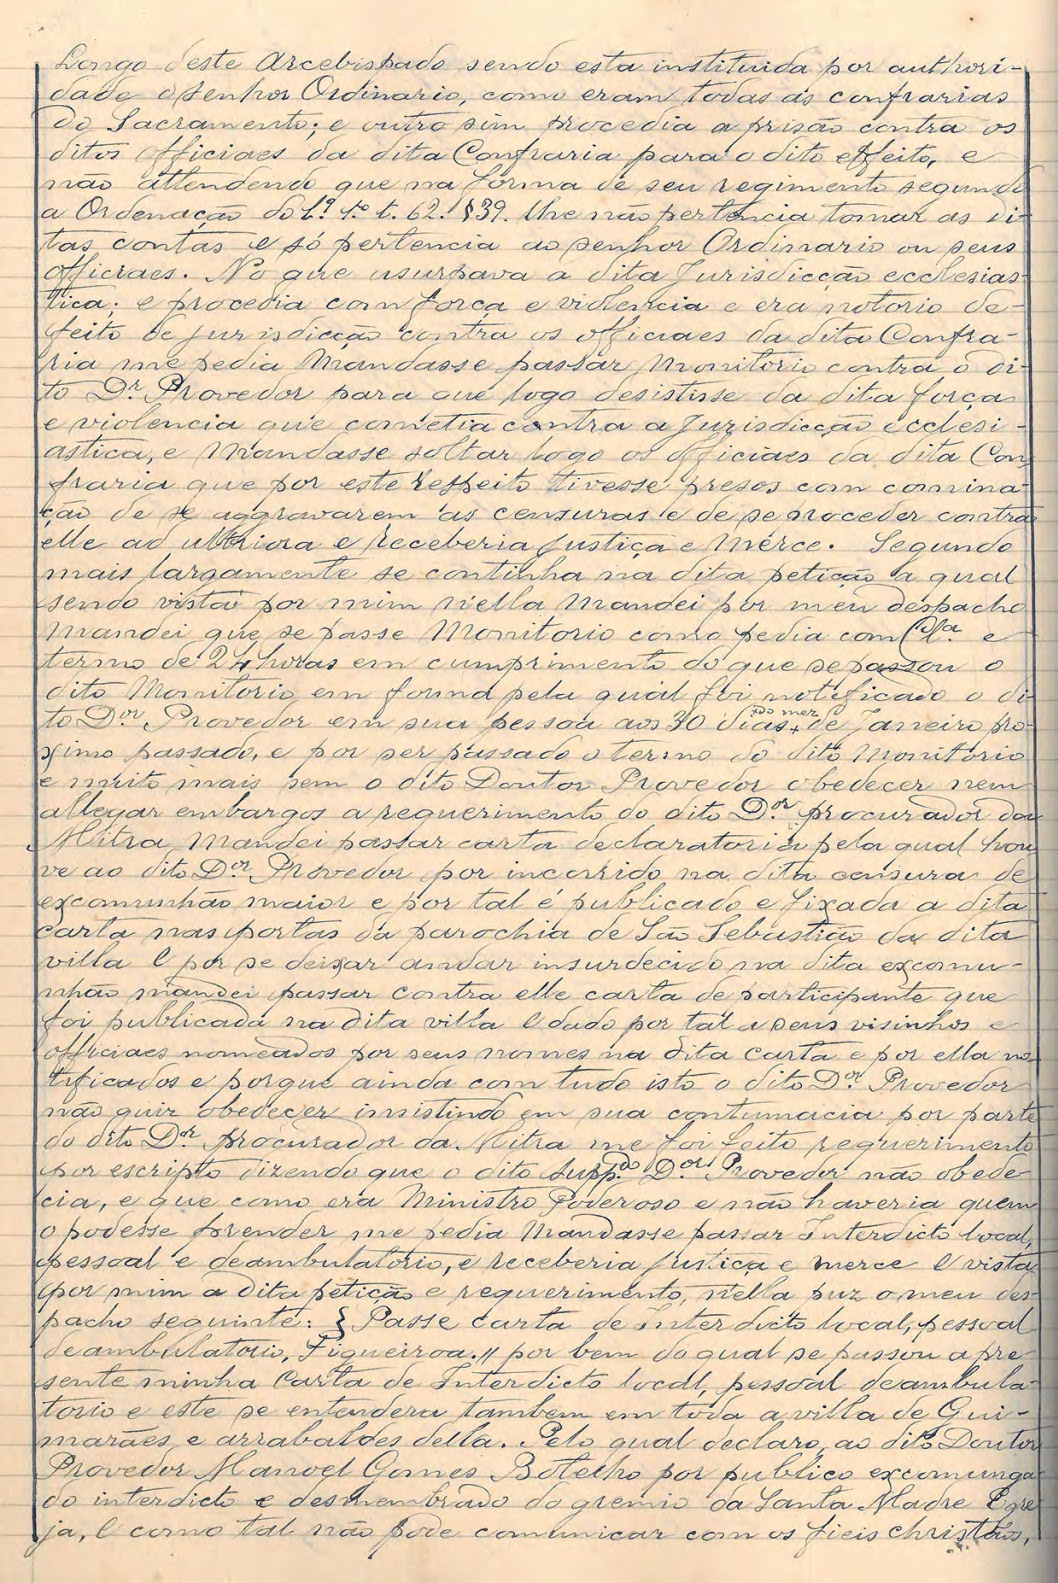 Longo deste Arcebispado sendo esta instituida por authori-
dade do senhor Ordinario, como eram todas as confrarias
do Sacramento; e outro sim procedia a prisão contra os
ditos officiaes da dita Confraria para o dito effeito, e
não attendendo que na forma de seu regimento segundo
a Ordenação do L.º 1.º t. 62. § 39. lhe não pertencia tomar as di-
tas contas e só pertencia ao senhor Ordinario ou seus
officiaes. No que usurpava a dita Jurisdicção ecclesias-
tica; e procedia com força e violencia e era notorio de-
feito de jurisdicção contra os officiaes da dita Confra-
ria me pedia Mandasse passar Monitorio contra o di-
to Dr. Provedor para que logo desistisse da dita força
e violencia que cometia contra a Jurisdicção ecclesi-
astica, e Mandasse soltar logo os officiaes da dita Con-
fraria que por este respeito tivesse presos com comina-
ção de se aggravarem as censuras e de se proceder contra
elle ad ulteriora e receberia justiça e Mérce. Segundo
mais largamente se continha na dita petição a qual
sendo vista por mim n'ella Mandei por meu despacho
Mandei que se passe Monitorio como pedia com Clª. e
termo de 24 horas em cumprimento do que se passou o
dito Monitorio em forma pela qual foi notificado o di-
to Dor. Provedor em sua pessoa aos 30 dias do mez de Janeiro pro-
ximo passado, e por ser passado o termo do dito Monitorio
e muito mais sem o dito Doutor Provedor obedecer nem
allegar embargos a requerimento do dito Dor. procurador da
Mitra, Mandei passar carta declaratoria pela qual hou-
ve ao dito Dor. Provedor por incorrido na dita censura de
excomunhão maior e por tal é publicado e fixada a dita
carta nas portas da parochia de São Sebastião da dita
villa E por se deixar andar insurdecido na dita excomu-
nhão mandei passar contra elle carta de participante que
foi publicada na dita villa E dado por tal a seus visinhos e
officiaes nomeados por seus nomes na dita carta e por ella no-
tificados e porque ainda com tudo isto o dito Dor. Provedor
não quiz obedecer insistindo em sua contumacia por parte
do dito Dor. procurador da Mitra me foi feito requerimento
por escripto dizendo que o dito Supp.do Dor. Provedor não obede-
cia, e que como era Ministro Poderoso e não haveria quem
o podesse prender me pedia Mandasse passar Interdicto local,
pessoal e deambulatorio, e receberia justiça e merce E vista
por mim a dita petição e requerimento, n'ella puz o meu des-
pacho seguinte: } Passe carta de Interdicto local, pessoal
deambulatorio, Figueiroa. // por bem do qual se passou a pre-
sente minha Carta de Interdicto local, pessoal deambula-
torio e este se entendera tambem em toda a villa de Gui-
marães e arrabaldes della. Pelo qual declaro ao dito Doutor
Provedor Manoel Gomes Botelho por publico excomunga-
do interdicto e desmembrado do gremio da Santa Madre Egre-
ja, E como tal não pode comunicar com os fieis christãos,